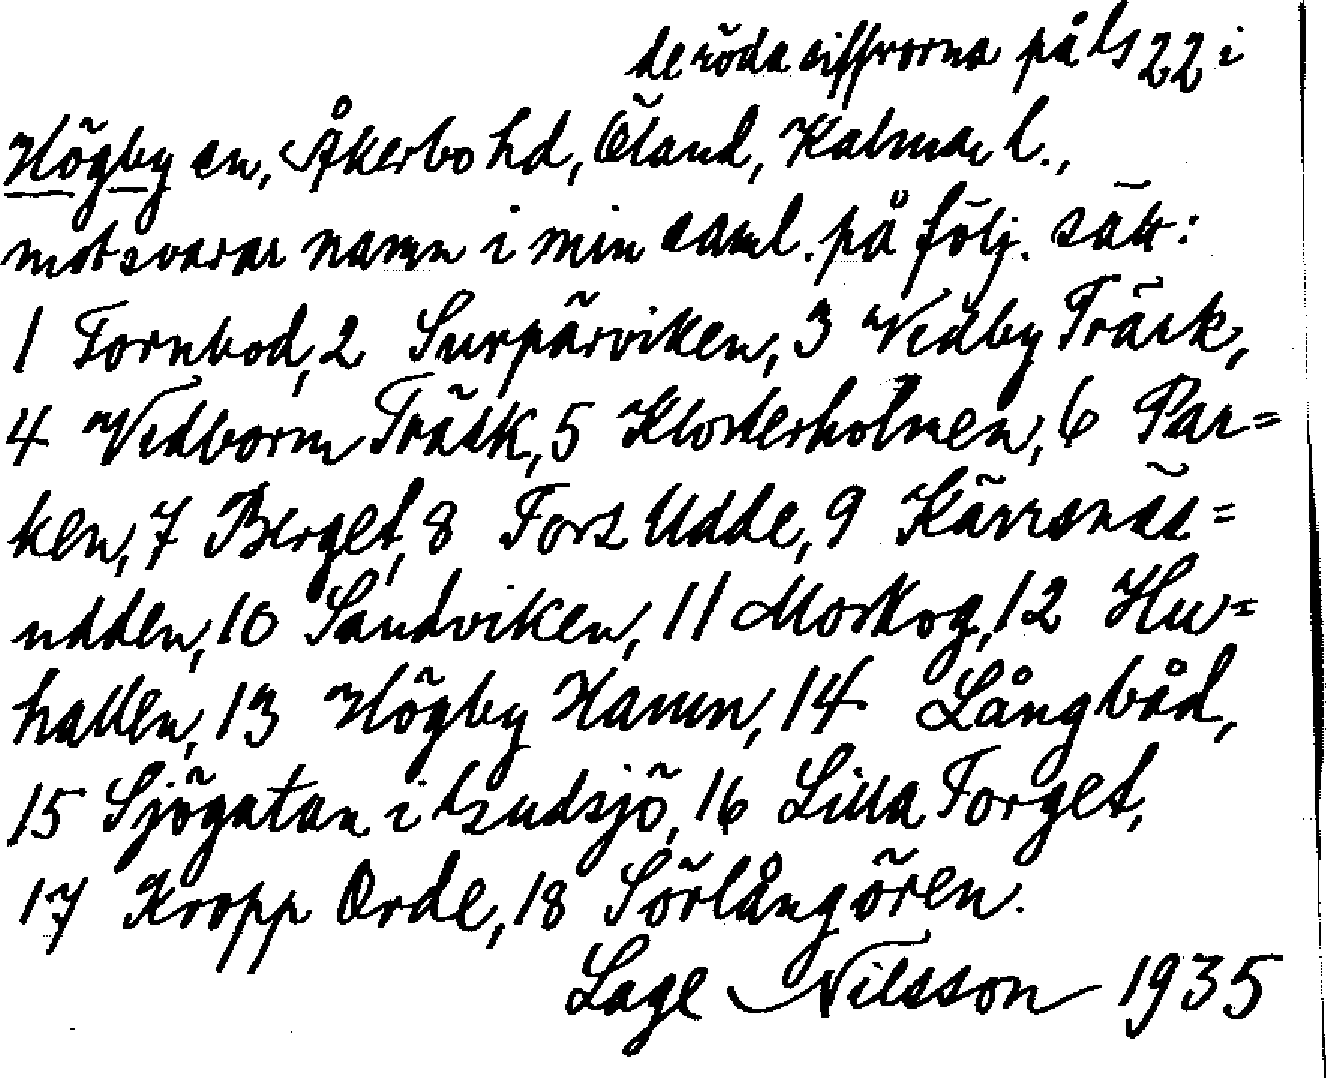 de röda siffrorna på bl 22 i
Högby sn, Åkerbo hd, Öland, Kalmar l.,
motsvarar namn i min saml. på följ. sätt:
1 Tornbod, 2 Surpärviken, 3 Vedby Träsk,
4 Vedborm Träsk, 5 Klosterholmen, 6 Par=
ken, 7 Berget, 8 Fors Udde, 9 Kärrsnäs=
udden, 10 Sandviken, 11 Morskog, 12 Hu=
hallen, 13 Högby Hamn, 14 Långbåd,
15 Sjögatan i Lsudsjö, 16 Lilla Torget,
17 Kropp Orde, 18 Sörlångören.
Lage Nilsson 1935